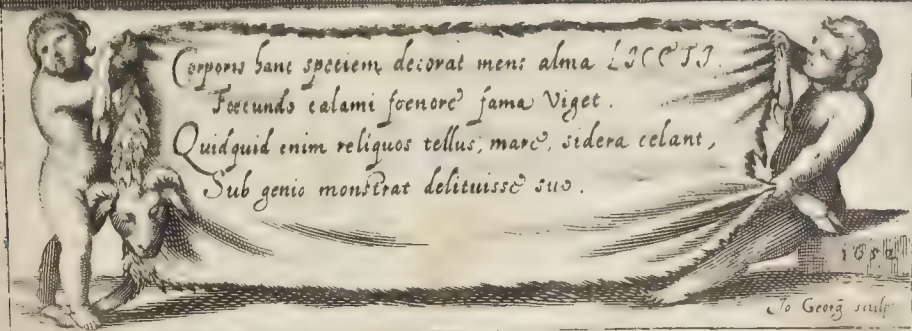 Corporis hanc speciem decorat mens alma LICETI.
Foecundo calami foenore fama Viget.
Quidquid enim reliquos tellus, mare, sidera celant,
Sub genio monstrat delituisse suo.
1652
Jo Georg̃ sculp